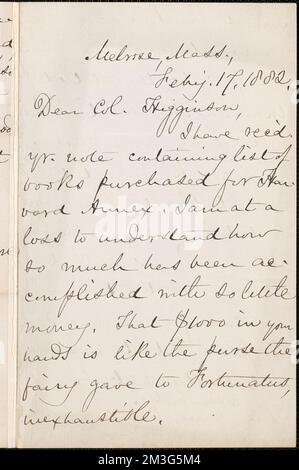 Melrose, Mass.,
Feby. 17, 1882.
Dear Col. Higginson,
I have rec'd
yr. note containing list of
books purchased for Har-
vard Annex. I am at a
loss to understand how
so much has been ac-
complished with so little
money. That $1000 in your
hands is like the purse the
fairy gave to Fortunatus,
inexhaustible.
alamy
Image ID: 2M3G5M4
www.alamy.com